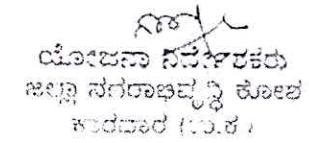 ಯೋಜನಾ ನಿರ್ದೇಶಕರು
ಜಿಲ್ಲಾ ನಗರಾಭಿವೃದ್ಧಿ ಕೋಶ
ಕಾರವಾರ (ಉ.ಕ)